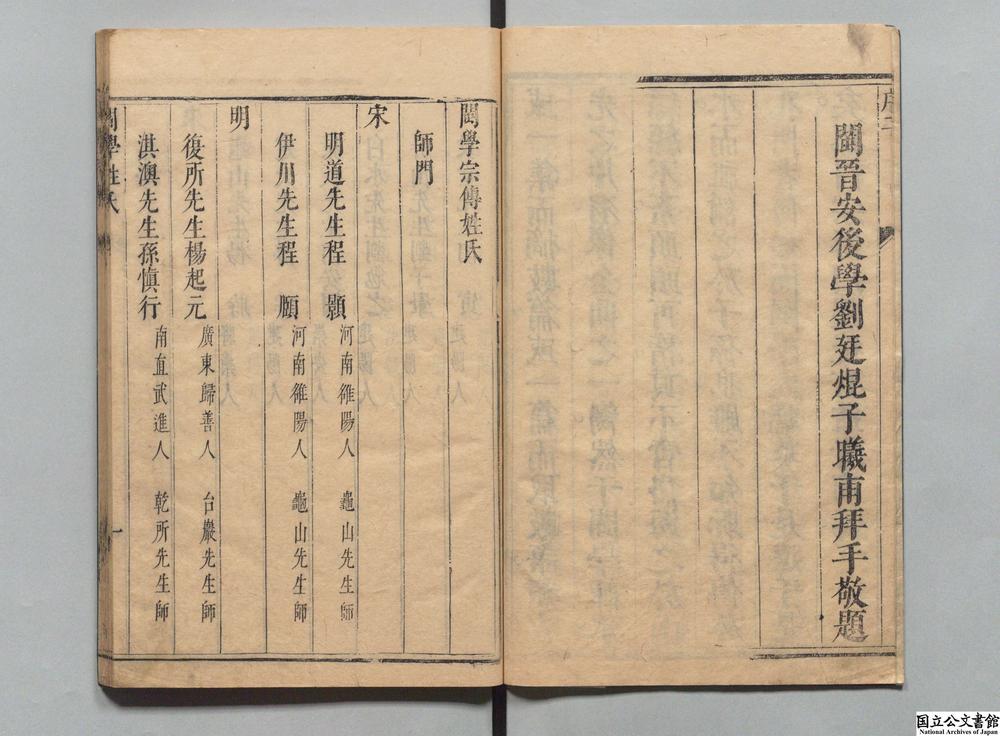 閩晉安後學劉廷焜子曦甫拜手敬題
閩學宗傳姓氏
師門
宋
明道先生程顥 河南雒陽人 龜山先生師
伊川先生程頤 河南雒陽人 龜山先生師
明
復所先生楊起元 廣東歸善人 台巖先生師
淇澳先生孫慎行 南直武進人 乾所先生師
閩學姓氏 一
国立公文書館
National Archives of Japan